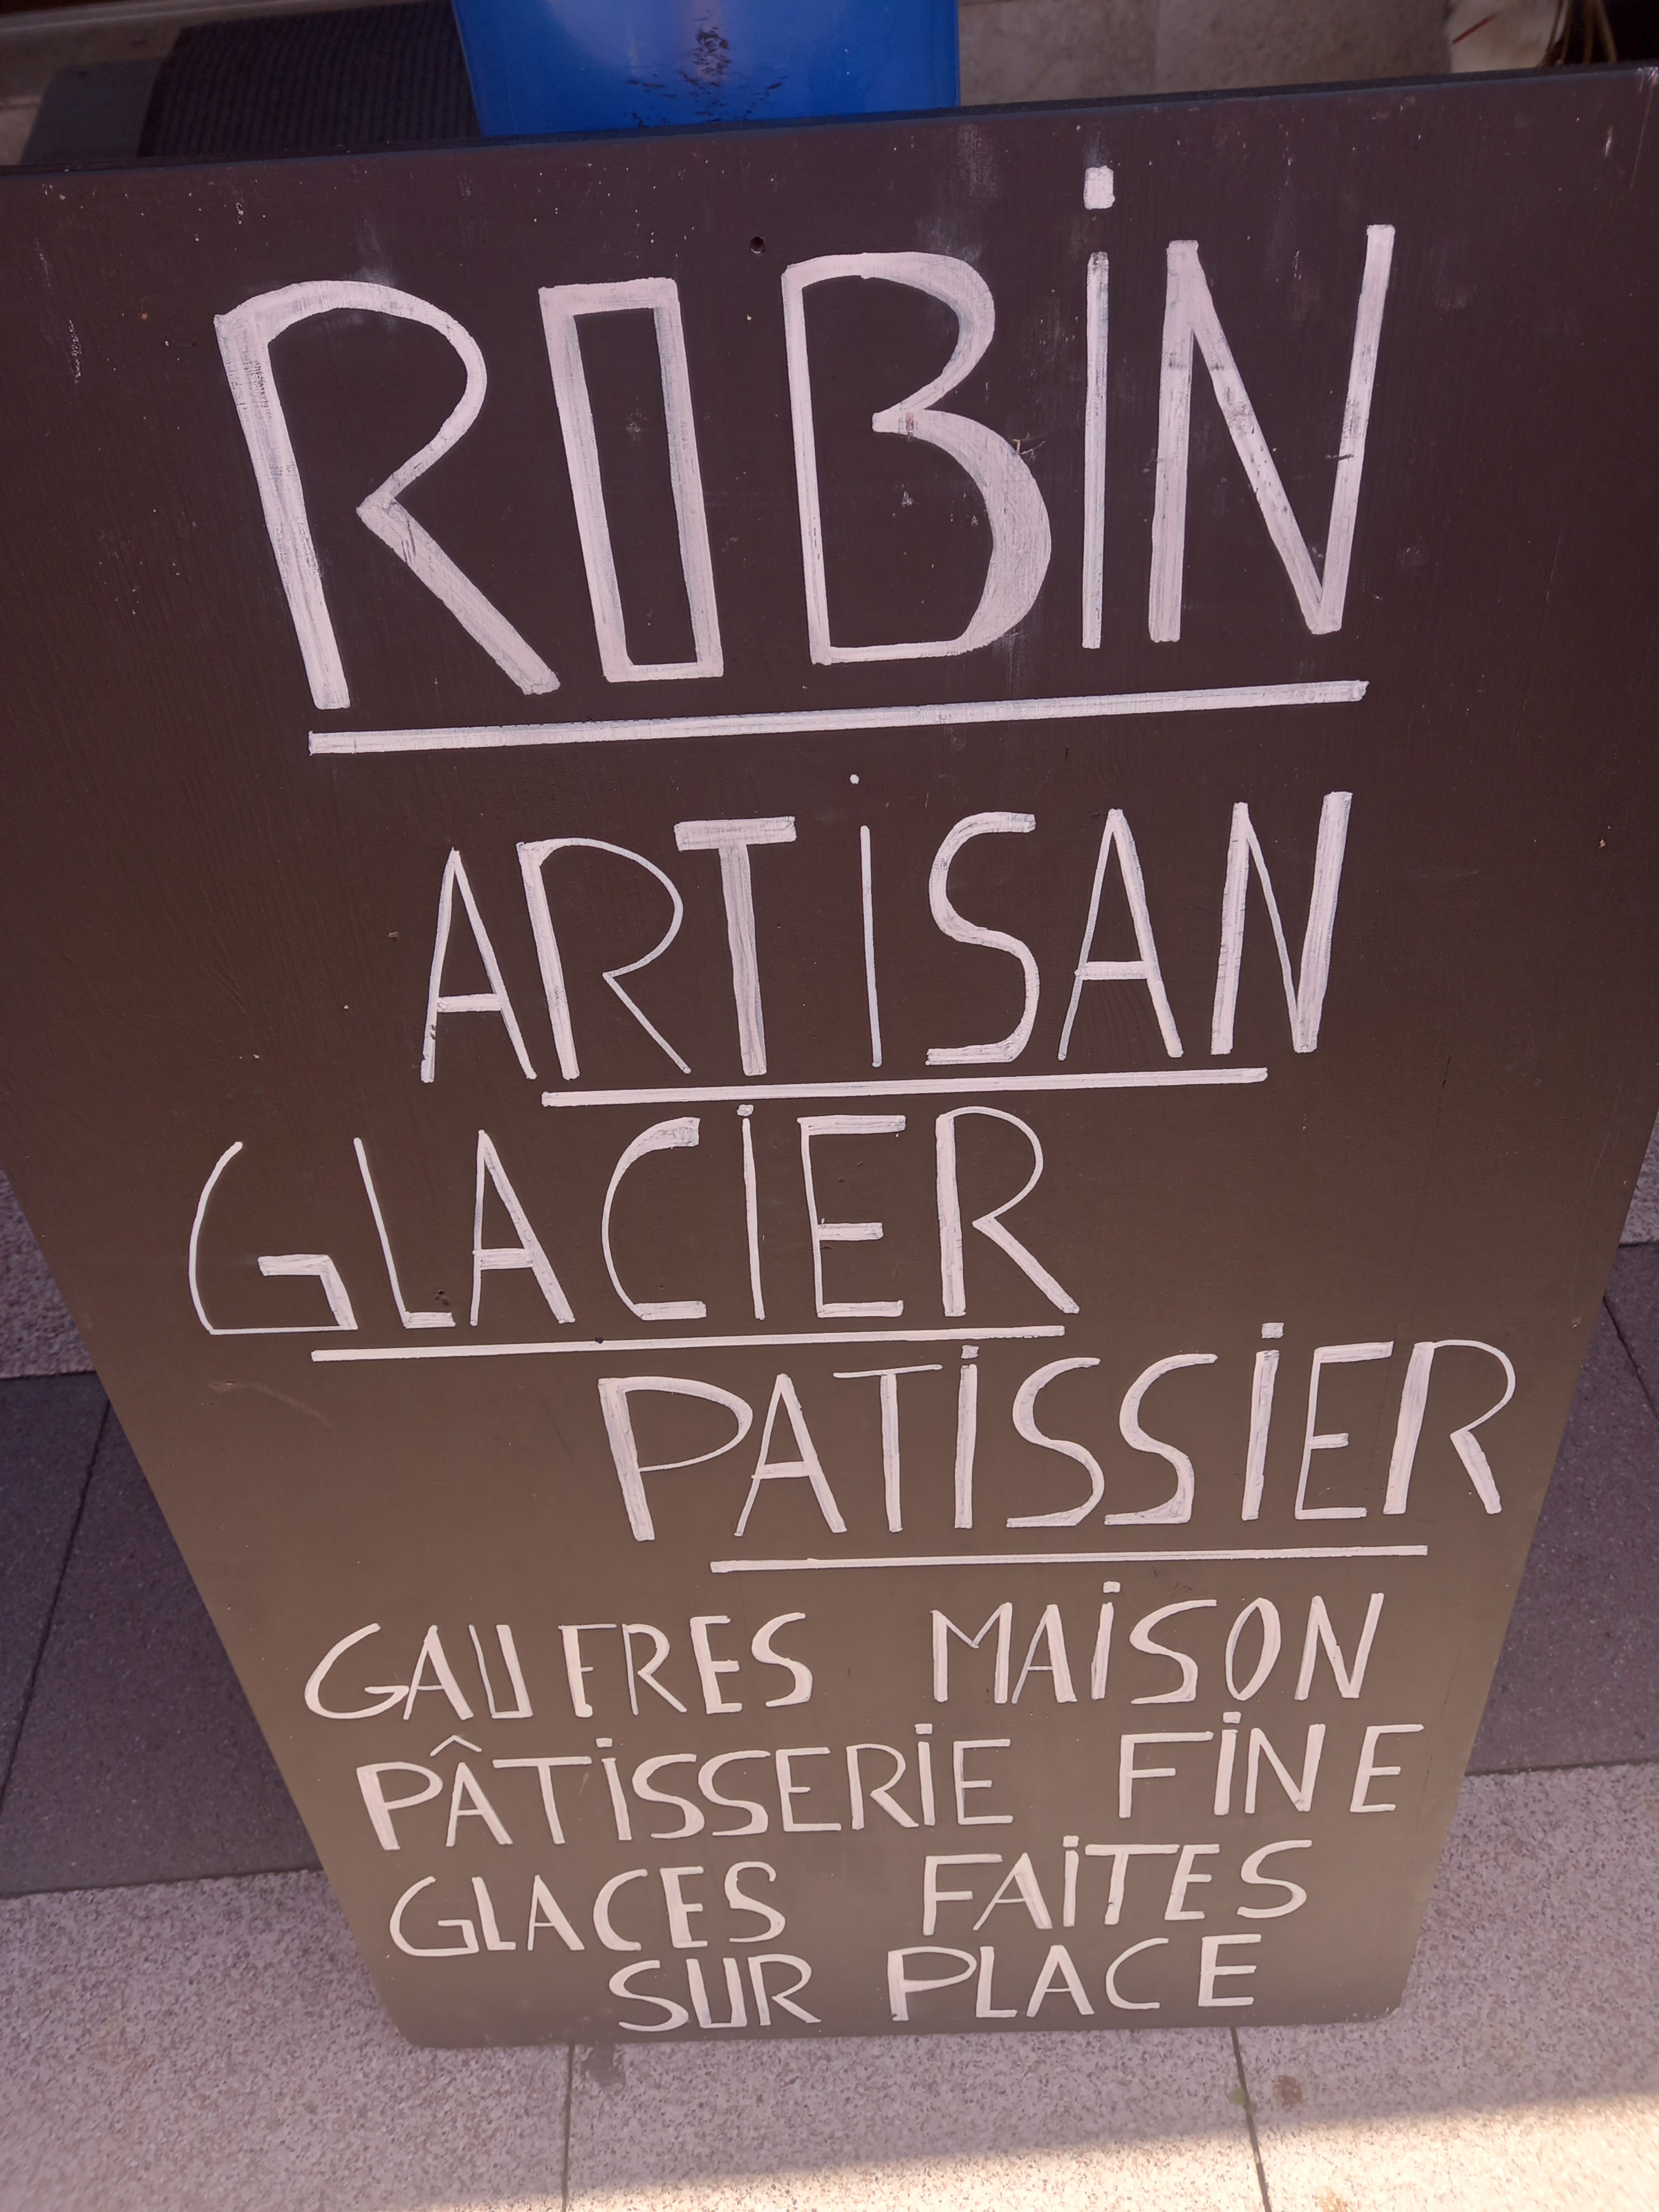 ROBiN
ARTiSAN
GLACiER
PATiSSiER
GAUFRES MAiSON
PÂTiSSERiE FiNE
GLACES FAiTES
SUR PLACE